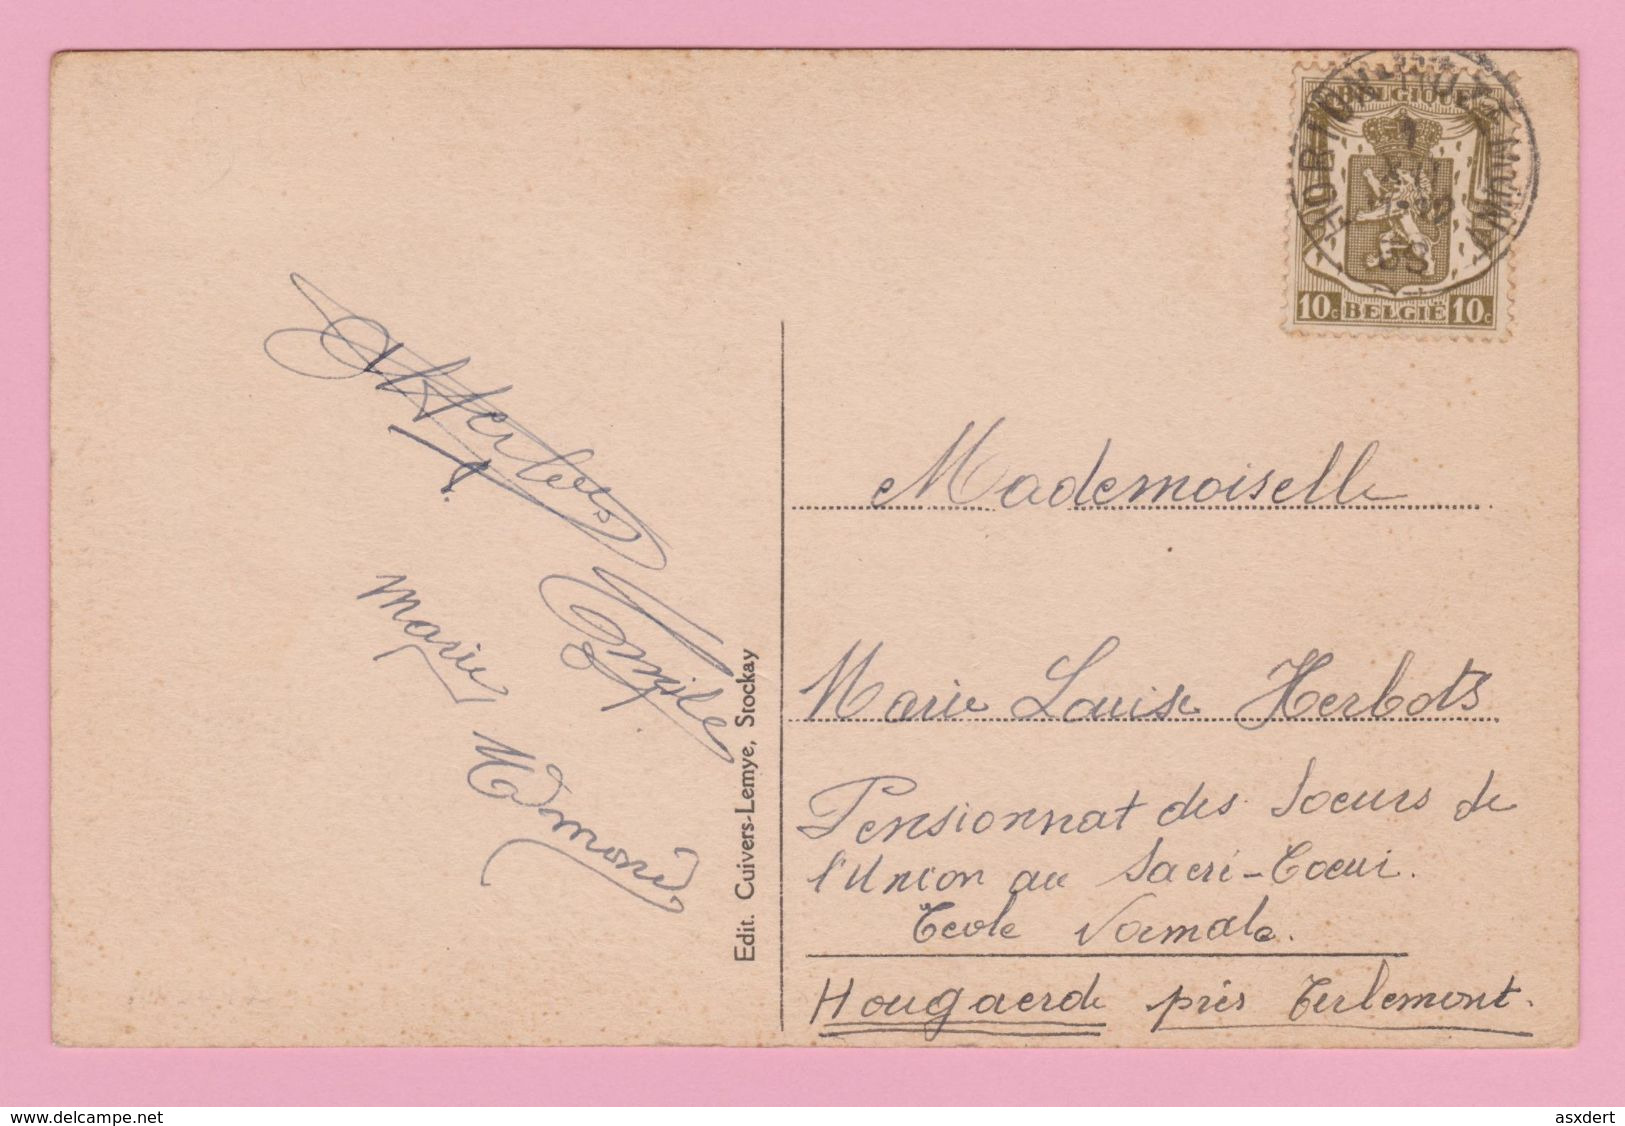 BELGIQUE
HORION-HOZÉMONT
1
XII
38
10c BELGIË 10c
A Herbots
Emile
Marie
Edmond
Edit. Cuivers-Lemye, Stockay
Mademoiselle
Marie Louise Herbots
Pensionnat des Soeurs de
l'Union au Sacré-Coeur.
Ecole Normale.
Hougaerde près Tirlemont.
www.delcampe.net
asxdert